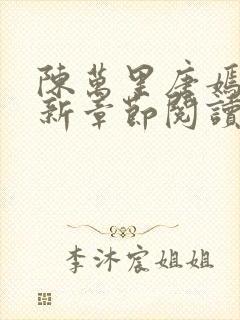 陳萬里唐嫣
新章節閱讀
李沐宸姐姐